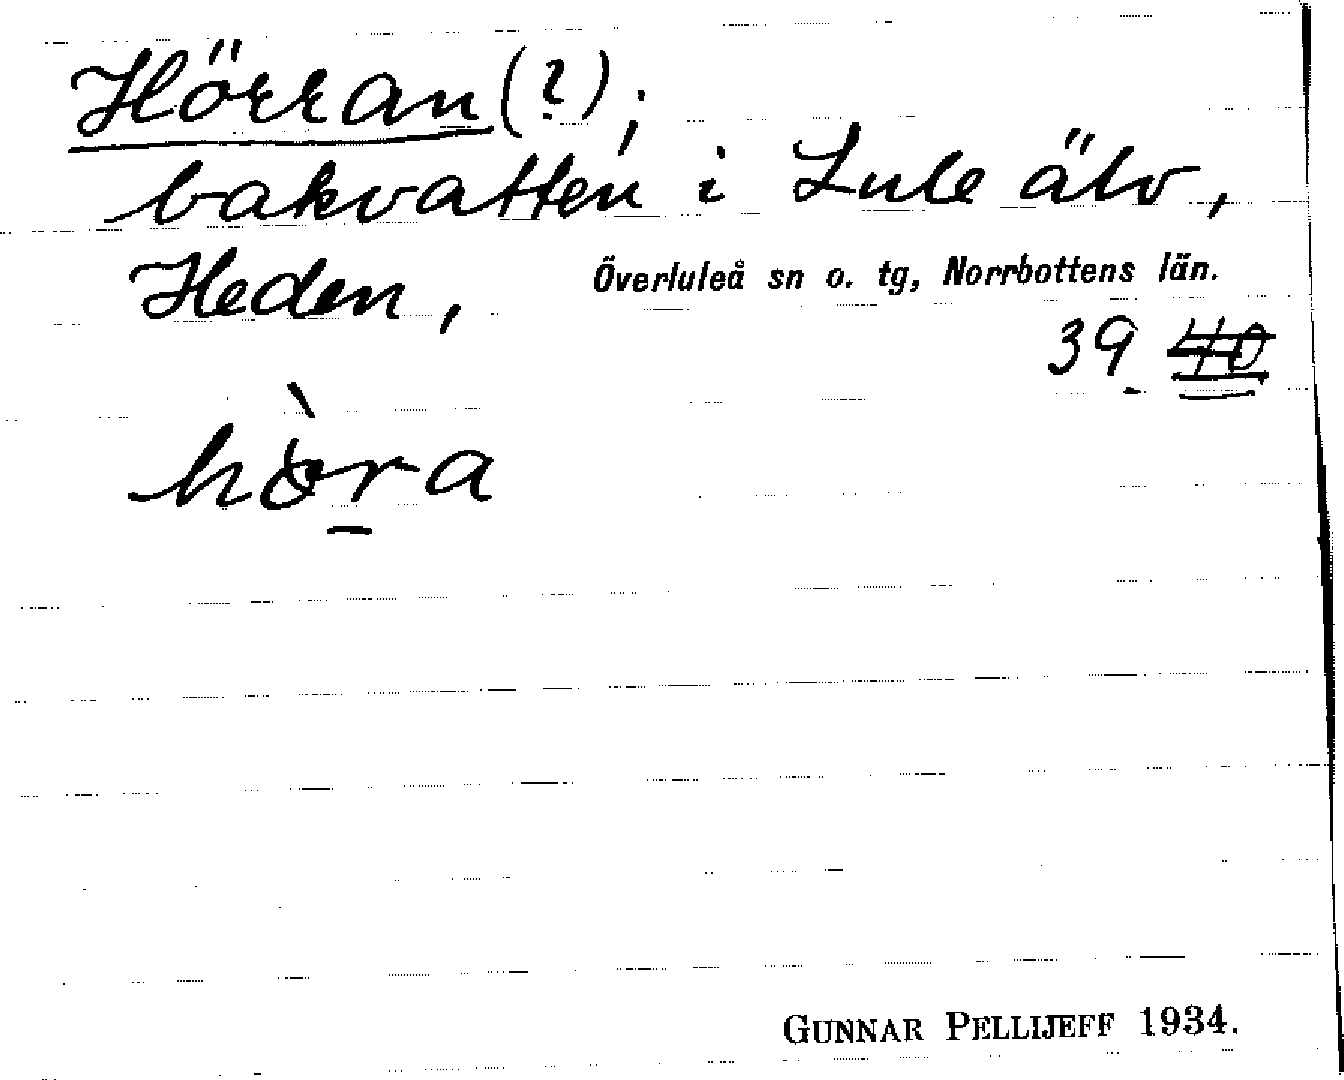 Hörran (?);
bakvatten i Lule älv,
Heden, Överluleå sn o. tg, Norrbottens län.
39 40
hòra
GUNNAR PELLIJEFF 1934.